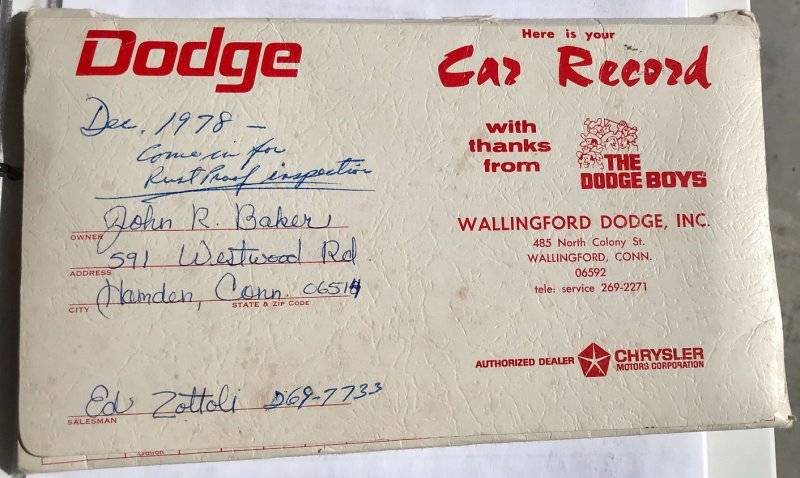 Dodge
Dec, 1978 -
Come in for
Rust Proof inspection
John R. Baker
OWNER
591 Westwood Rd.
ADDRESS
Hamden, Conn. 06514
CITY STATE & ZIP CODE
Ed Zottoli 269-7733
SALESMAN
Here is your
Car Record
with
thanks
from
THE
DODGE BOYS
WALLINGFORD DODGE, INC.
485 North Colony St.
WALLINGFORD, CONN.
06592
tele: service 269-2271
AUTHORIZED DEALER CHRYSLER
MOTORS CORPORATION